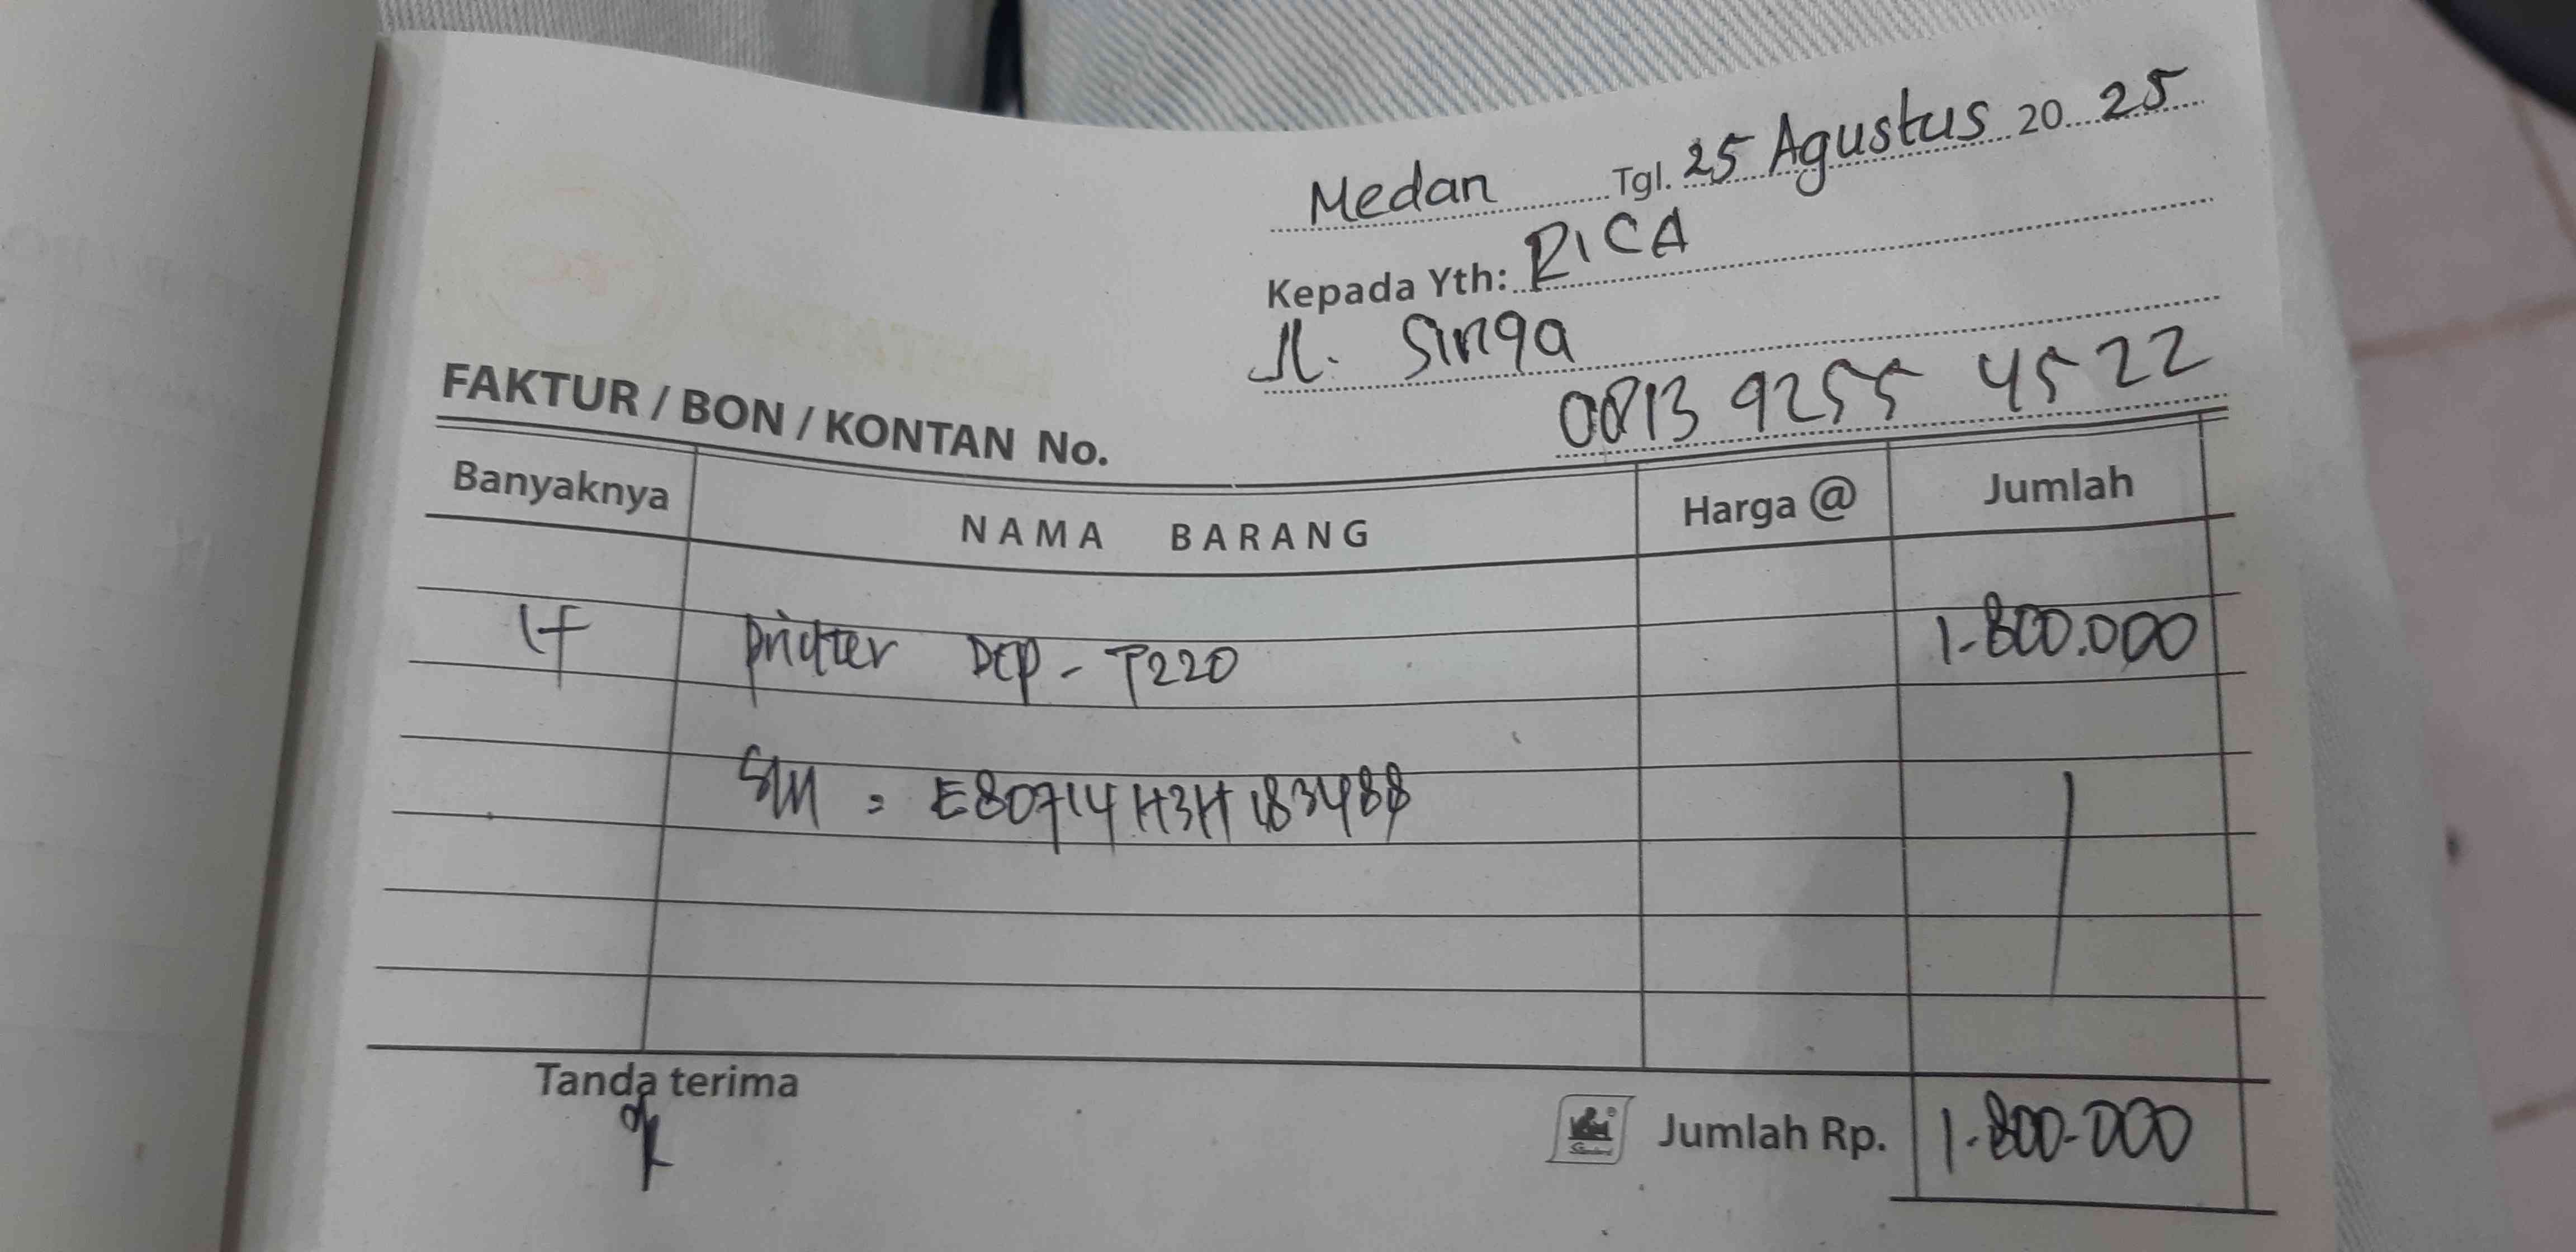 Medan Tgl. 25 Agustus 20 25
Kepada Yth: RICA
Jl. Singa
0813 9255 4522
FAKTUR / BON / KONTAN No.
Banyaknya NAMA BARANG Harga @ Jumlah
printer DCP - T220 1.800.000
S/N = E80714H3H183488
Tanda terima
Jumlah Rp. 1.800.000